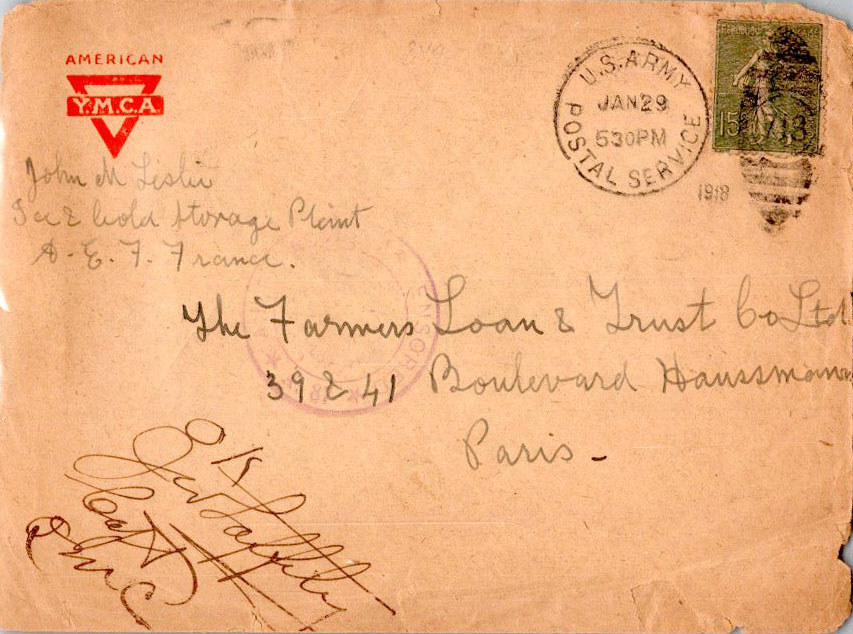 AMERICAN
Y.M.C.A
U.S. ARMY
JAN 29
5 30 PM
POSTAL SERVICE
1918
15
John M Leslie
Ice & Cold Storage Plant
A. E. F. France.
CENSORED
The Farmers Loan & Trust Co Ltd
39 & 41 Boulevard Haussmann
Paris -
OK
Capt
QMC